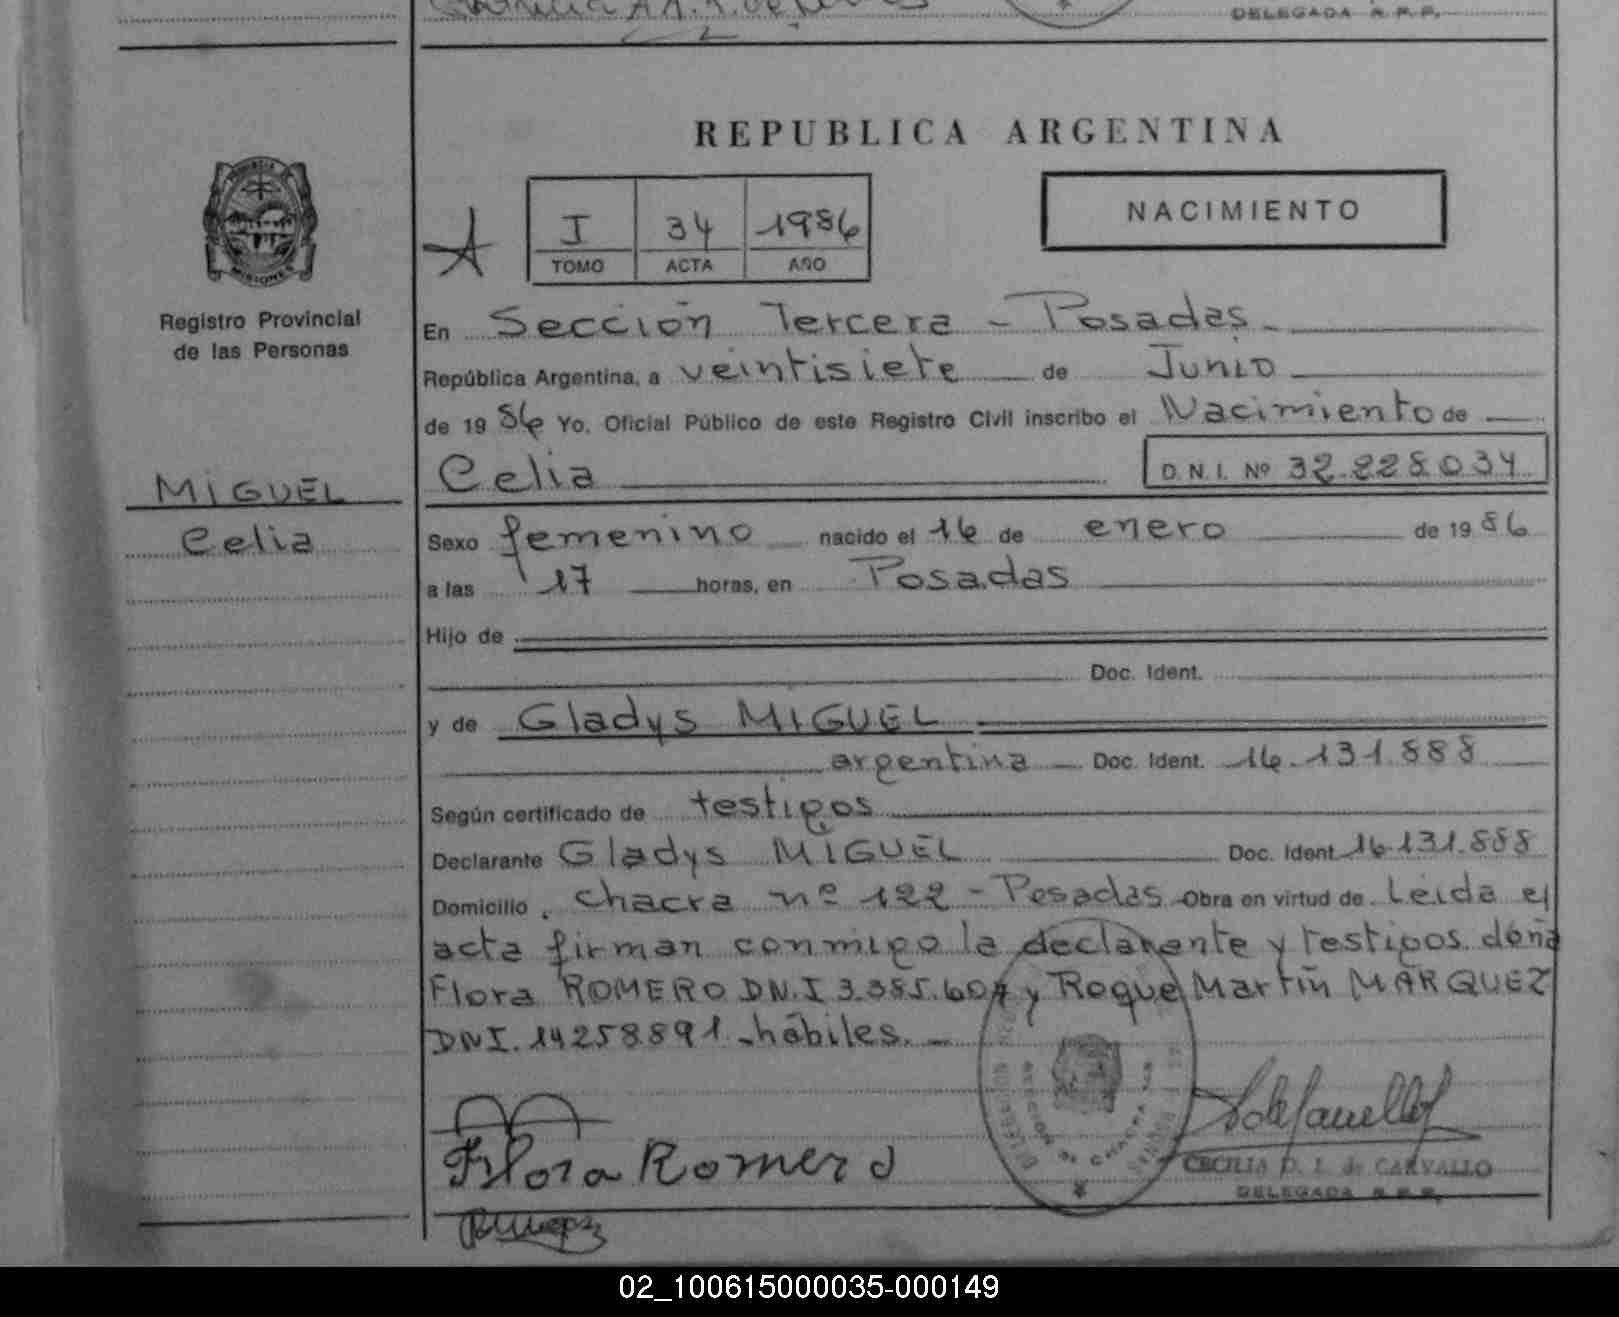 DELEGADA R.P.P.
REPUBLICA ARGENTINA
PROVINCIA
MISIONES
I 34 1986
TOMO ACTA AÑO
NACIMIENTO
Registro Provincial
de las Personas
En Sección Tercera - Posadas
República Argentina, a veintisiete de Junio
de 1986 Yo, Oficial Público de este Registro Civil inscribo el Nacimiento de
Celia D.N.I. Nº 32.228.034
MIGUEL
Celia
Sexo femenino nacido el 16 de enero de 1986
a las 17 horas, en Posadas
Hijo de
Doc. Ident.
y de Gladys MIGUEL
argentina Doc. Ident. 16.131.888
Según certificado de testigos
Declarante Gladys MIGUEL Doc. Ident. 16.131.888
Domicilio, chacra nº 122 - Posadas Obra en virtud de Leida el
acta firman conmigo la declarante y testigos doña
Flora ROMERO DN.I 3.385.607 y Roque Martín MARQUEZ
DNI. 14258891 - hábiles. -
Flora Romero
CECILIA D. L. de CARVALLO
DELEGADA R.P.P.
02_100615000035-000149